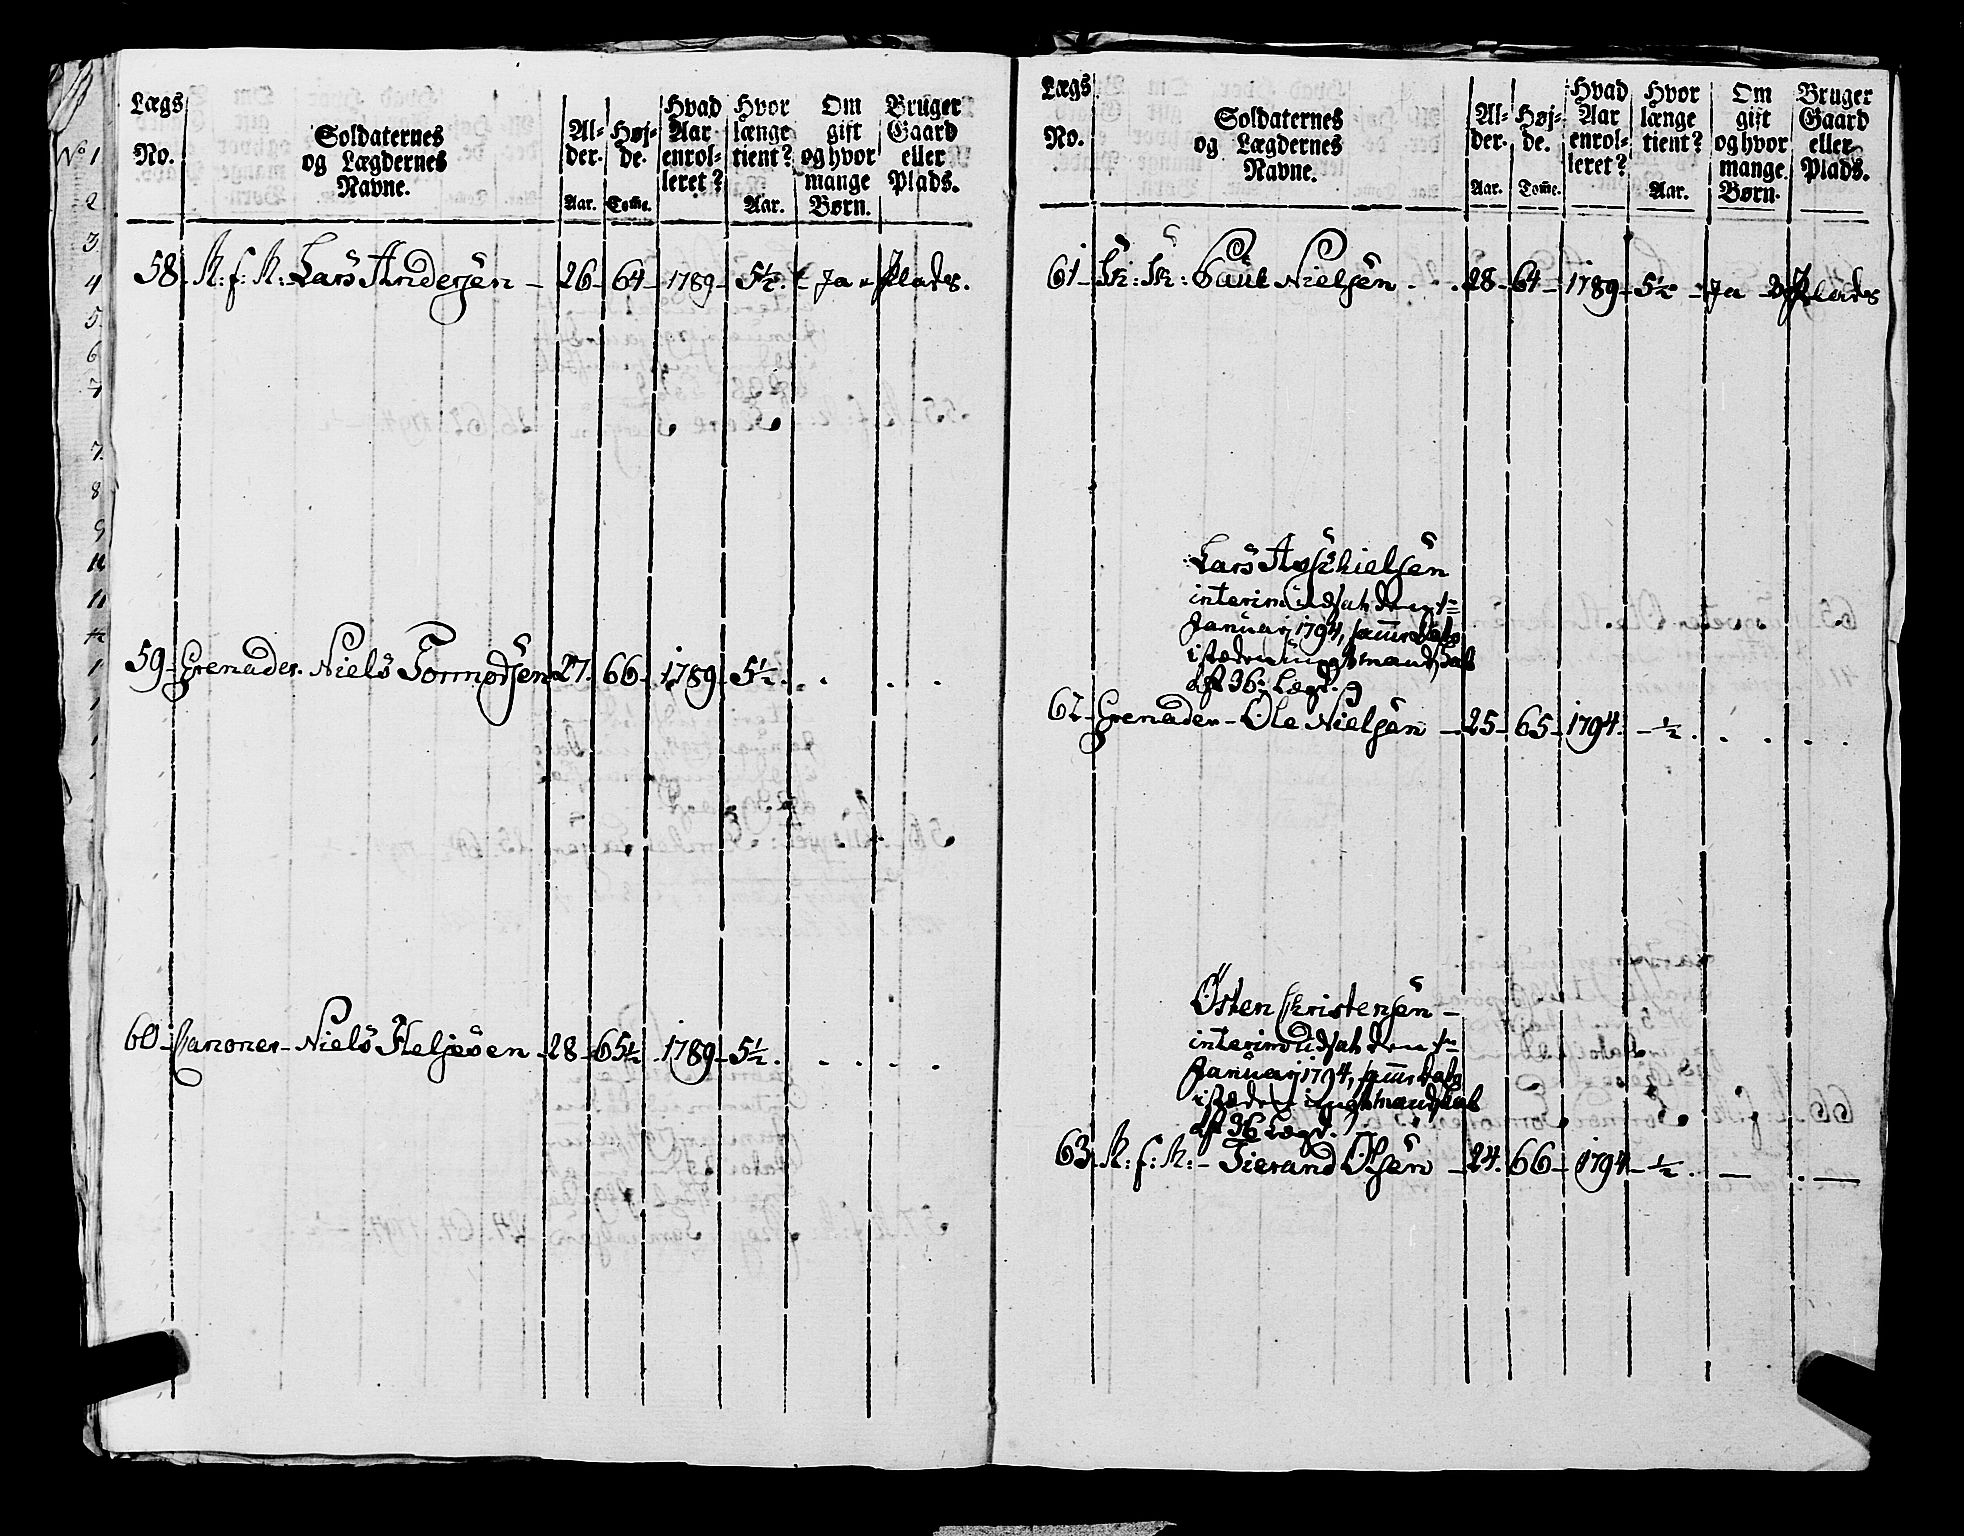 Lægs No.
Soldaternes og Lægdernes Navne.
Alder. Aar.
Højde. Tome.
Hvad Aar enrolleret?
Hvor længe tient? Aar.
Om gift og hvor mange Børn.
Bruger Gaard eller Plads.
58 R: f: R: Lars Andersen – 26 – 64 – 1789 – 5½ – Ja – Plads.
59 – Grenader. Niels Tormodsen 27. 66 – 1789 – 5½ . . . .
60 – Canoner – Niels Heljesen – 28 – 65½ – 1789 – 5½ . . . . .
Lægs No.
Soldaternes og Lægdernes Navne.
Alder. Aar.
Højde. Tome.
Hvad Aar enrolleret?
Hvor længe tient? Aar.
Om gift og hvor mange Børn.
Bruger Gaard eller Plads.
61 – Sk: Sk: Paul Nielsen . . . 28 – 64 – 1789 – 5½ – Ja – Plads
Lars
interim udsat den 1te
Januarj 1794,
i stæden ungt mandskab
af 36 Lægd.
62 – Grenader – Ole Nielsen – 25 – 65 – 1794. – ½ . . . . .
Østen Christensen –
interim udsat den 1te
Januarj 1794,
i stæden ungt mandskab
af 36 Lægd.
63. R: f: R: – Tierand Olsen – 24. 66 – 1794 – ½ . — . —